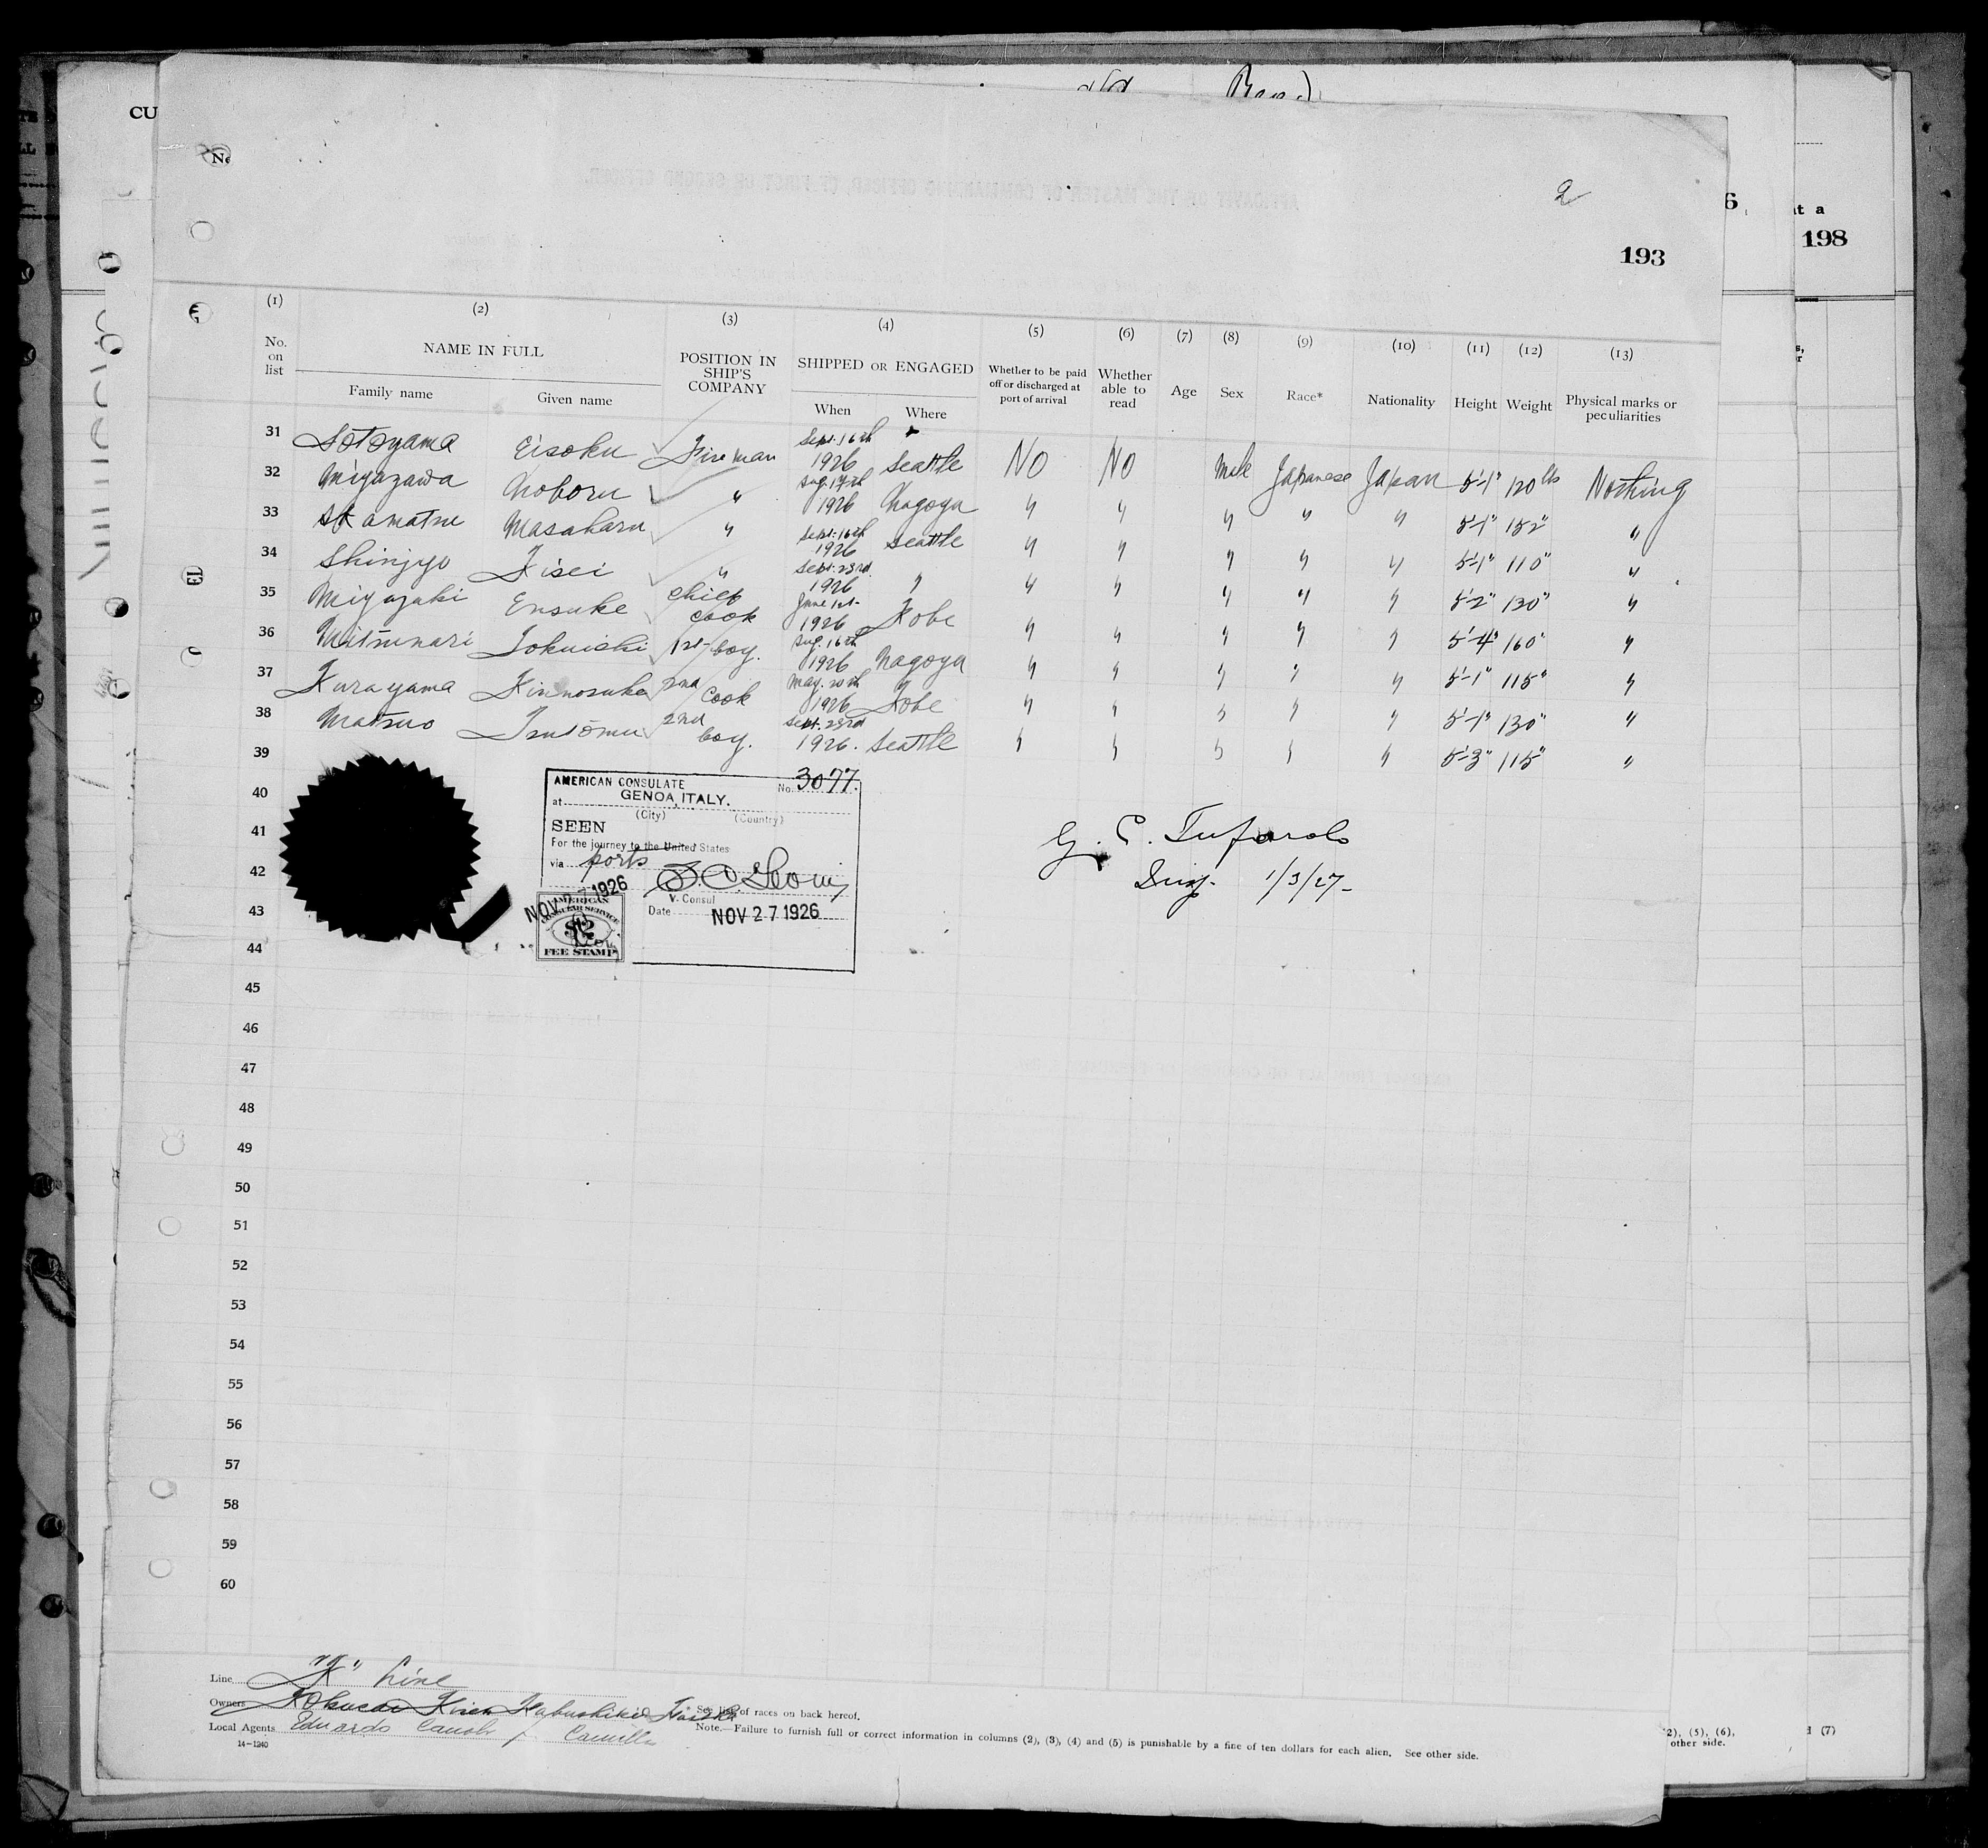 CU
No
2
6
at a
193
198
(1) (2) (3) (4) (5) (6) (7) (8) (9) (10) (11) (12) (13)
No. on list
NAME IN FULL
Family name Given name
POSITION IN SHIP'S COMPANY
SHIPPED OR ENGAGED
When Where
Whether to be paid off or discharged at port of arrival
Whether able to read
Age Sex Race* Nationality Height Weight Physical marks or peculiarities
31 Sotoyama Eisoku Fireman Sept. 16th 1926 Seattle No No Male Japanese Japan 5'-1" 120 lbs Nothing
32 Miyazawa Noboru " Aug. 17th 1926 Nagoya " " " " " 5'-1" 152" "
33 Masaharu " Sept. 16th 1926 Seattle " " " " " 5'-1" 110" "
34 Shinjyo Kisei " Sept. 23rd 1926 " " " " " " 5'-2" 130" "
35 Miyazaki Ensuke Chief Cook June 1st 1926 Kobe " " " " " 5'-4" 160" "
36 Mitsunari Tokuichi 1st boy. Aug. 16th 1926 Nagoya " " " " " 5'-1" 115" "
37 Kurayama Kinnosuke 2nd Cook May. 20th 1926 Kobe " " " " " 5'-1" 130" "
38 Matsuo Tsutomu 2nd boy. Sept. 23rd 1926. Seattle " " " " " 5'-3" 115" "
39
40
41
42
43
44
45
46
47
48
49
50
51
52
53
54
55
56
57
58
59
60
AMERICAN CONSULATE No. 3077.
at GENOA, ITALY.
(City) (Country)
SEEN
For the journey to the United States
via ports
V. Consul
Date NOV 27 1926
NOV 27 1926
AMERICAN
CONSULAR SERVICE
$2
FEE STAMP
G. C.
1/3/27
Line "K" Line
Owners Kokusai Kisen Kabushiki Kaisha
Local Agents Eduardo Camillo
14-1240
* See list of races on back hereof.
Note.—Failure to furnish full or correct information in columns (2), (3), (4) and (5) is punishable by a fine of ten dollars for each alien. See other side.
2), (5), (6),
other side.
(7)